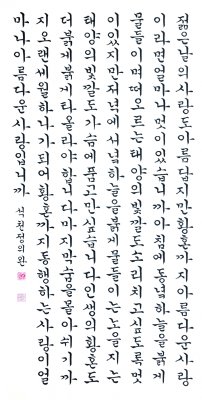 젊은날의사랑도아름답지만황혼까지아름다운사랑
이라면얼마나멋이있습니까아침에동녘하늘을붉게
물들이며떠오르는태양의빛깔도소리치고싶도록멋
이있지만저녁에서녘하늘을붉게물들이는노을지는
태양의빛깔도가슴에품고만싶습니다인생의황혼도
더붉게붉게타올라야합니다마지막숨을몰아쉬기까
지오랜세월하나가되어황혼까지동행하는사랑이얼
마나아름다운사랑입니까 석천정의완